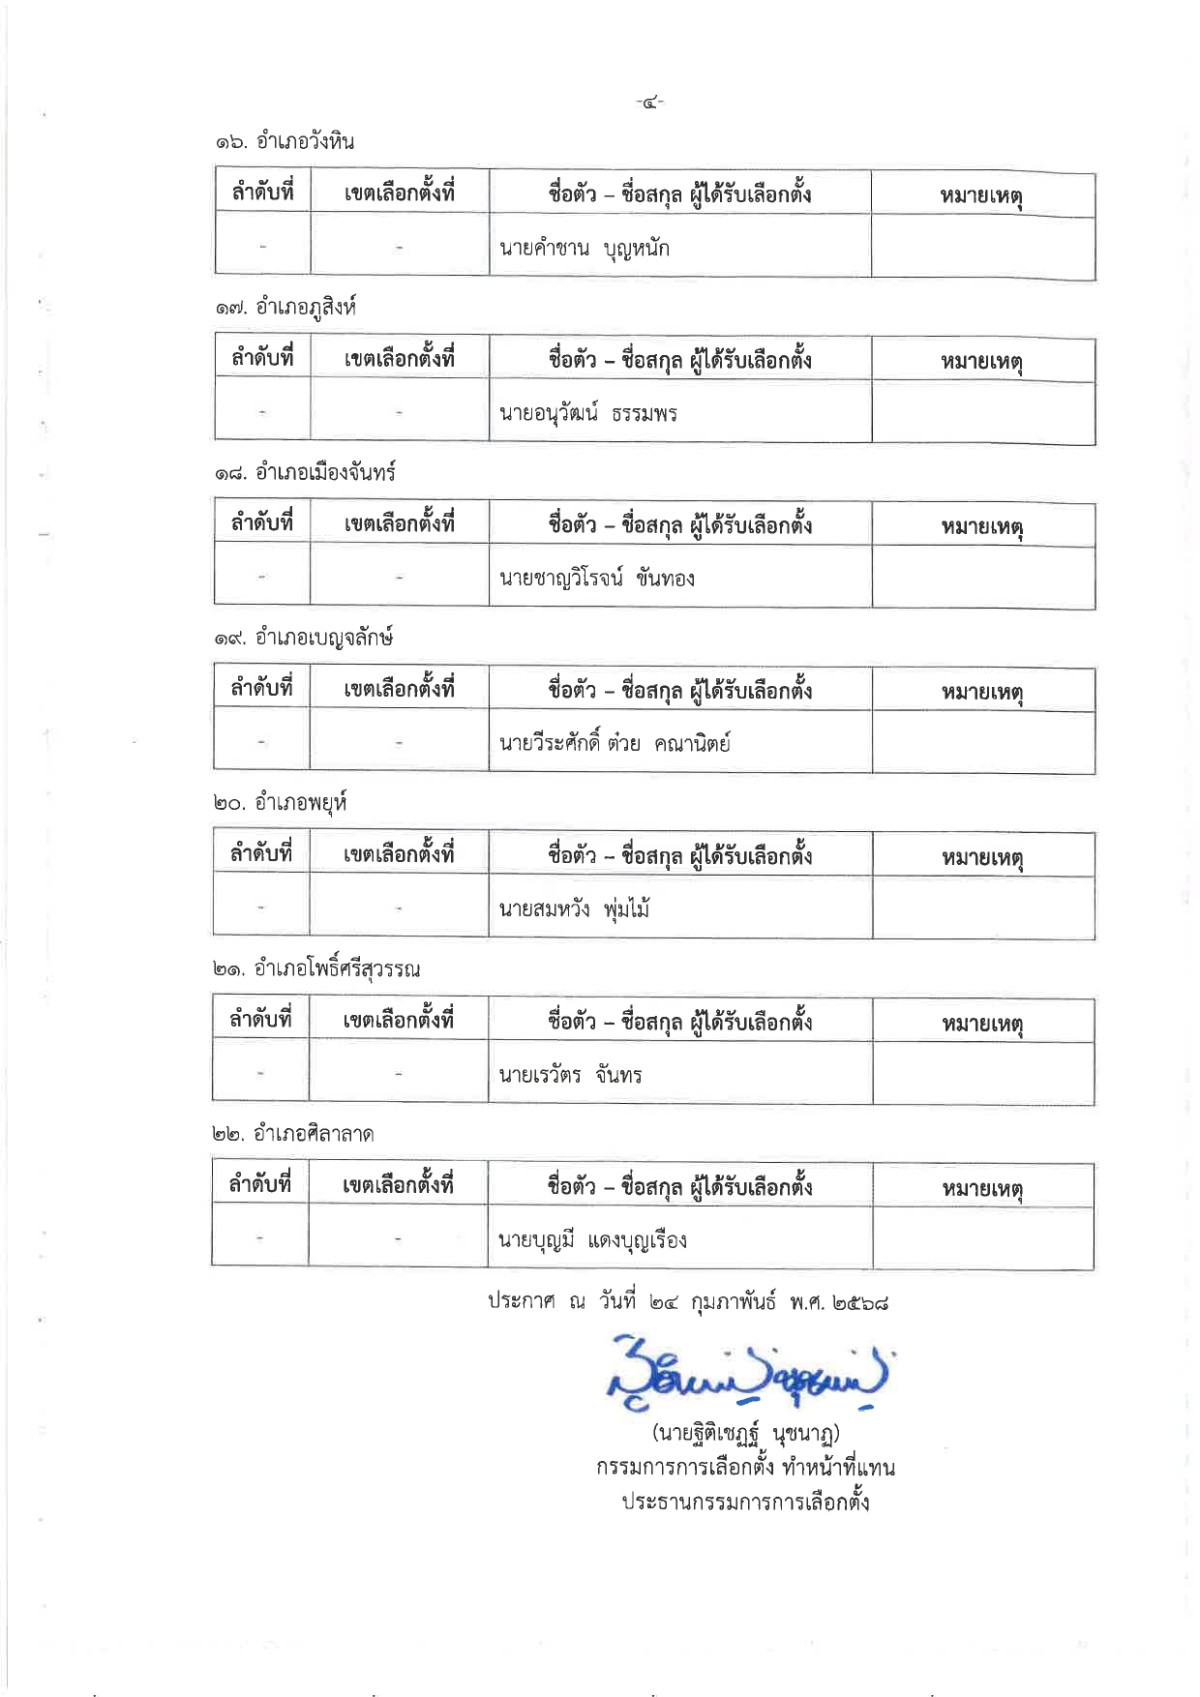 -๔-
๑๖. อำเภอวังหิน
ลำดับที่ เขตเลือกตั้งที่ ชื่อตัว – ชื่อสกุล ผู้ได้รับเลือกตั้ง หมายเหตุ
- - นายคำชาน บุญหนัก
๑๗. อำเภอภูสิงห์
ลำดับที่ เขตเลือกตั้งที่ ชื่อตัว – ชื่อสกุล ผู้ได้รับเลือกตั้ง หมายเหตุ
- - นายอนุวัฒน์ ธรรมพร
๑๘. อำเภอเมืองจันทร์
ลำดับที่ เขตเลือกตั้งที่ ชื่อตัว – ชื่อสกุล ผู้ได้รับเลือกตั้ง หมายเหตุ
- - นายชาญวิโรจน์ ขันทอง
๑๙. อำเภอเบญจลักษ์
ลำดับที่ เขตเลือกตั้งที่ ชื่อตัว – ชื่อสกุล ผู้ได้รับเลือกตั้ง หมายเหตุ
- - นายวีระศักดิ์ ต๋วย คณานิตย์
๒๐. อำเภอพยุห์
ลำดับที่ เขตเลือกตั้งที่ ชื่อตัว – ชื่อสกุล ผู้ได้รับเลือกตั้ง หมายเหตุ
- - นายสมหวัง พุ่มไม้
๒๑. อำเภอโพธิ์ศรีสุวรรณ
ลำดับที่ เขตเลือกตั้งที่ ชื่อตัว – ชื่อสกุล ผู้ได้รับเลือกตั้ง หมายเหตุ
- - นายเรวัตร จันทร
๒๒. อำเภอศิลาลาด
ลำดับที่ เขตเลือกตั้งที่ ชื่อตัว – ชื่อสกุล ผู้ได้รับเลือกตั้ง หมายเหตุ
- - นายบุญมี แดงบุญเรือง
ประกาศ ณ วันที่ ๒๔ กุมภาพันธ์ พ.ศ. ๒๕๖๘
(นายฐิติเชฏฐ์ นุชนาฏ)
กรรมการการเลือกตั้ง ทำหน้าที่แทน
ประธานกรรมการการเลือกตั้ง